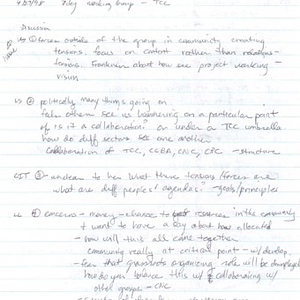 working group - TCC
Discussion
outside of the group in community creating
tensions. focus on content rather than
Frankness about how see project working
vision
② politically, many things going on
take others see us balancing on a particular point
of is it a collaboration or under a TCC umbrella
how do diff sectors see one another
collaboration of TCC, CCBA, CNC, CPC - structure
③ unclear to her what these tensions/forces are
what are diff peoples' agendas? - goals/principles
④ concerns - money - chance to resources in the community
& want to have a say about how allocated
- how will this all come together
community really at critical point - w/ develop.
- fear that grassroots organizing role will be
how do you balance this w/ collaborating w/
other groups - CNC